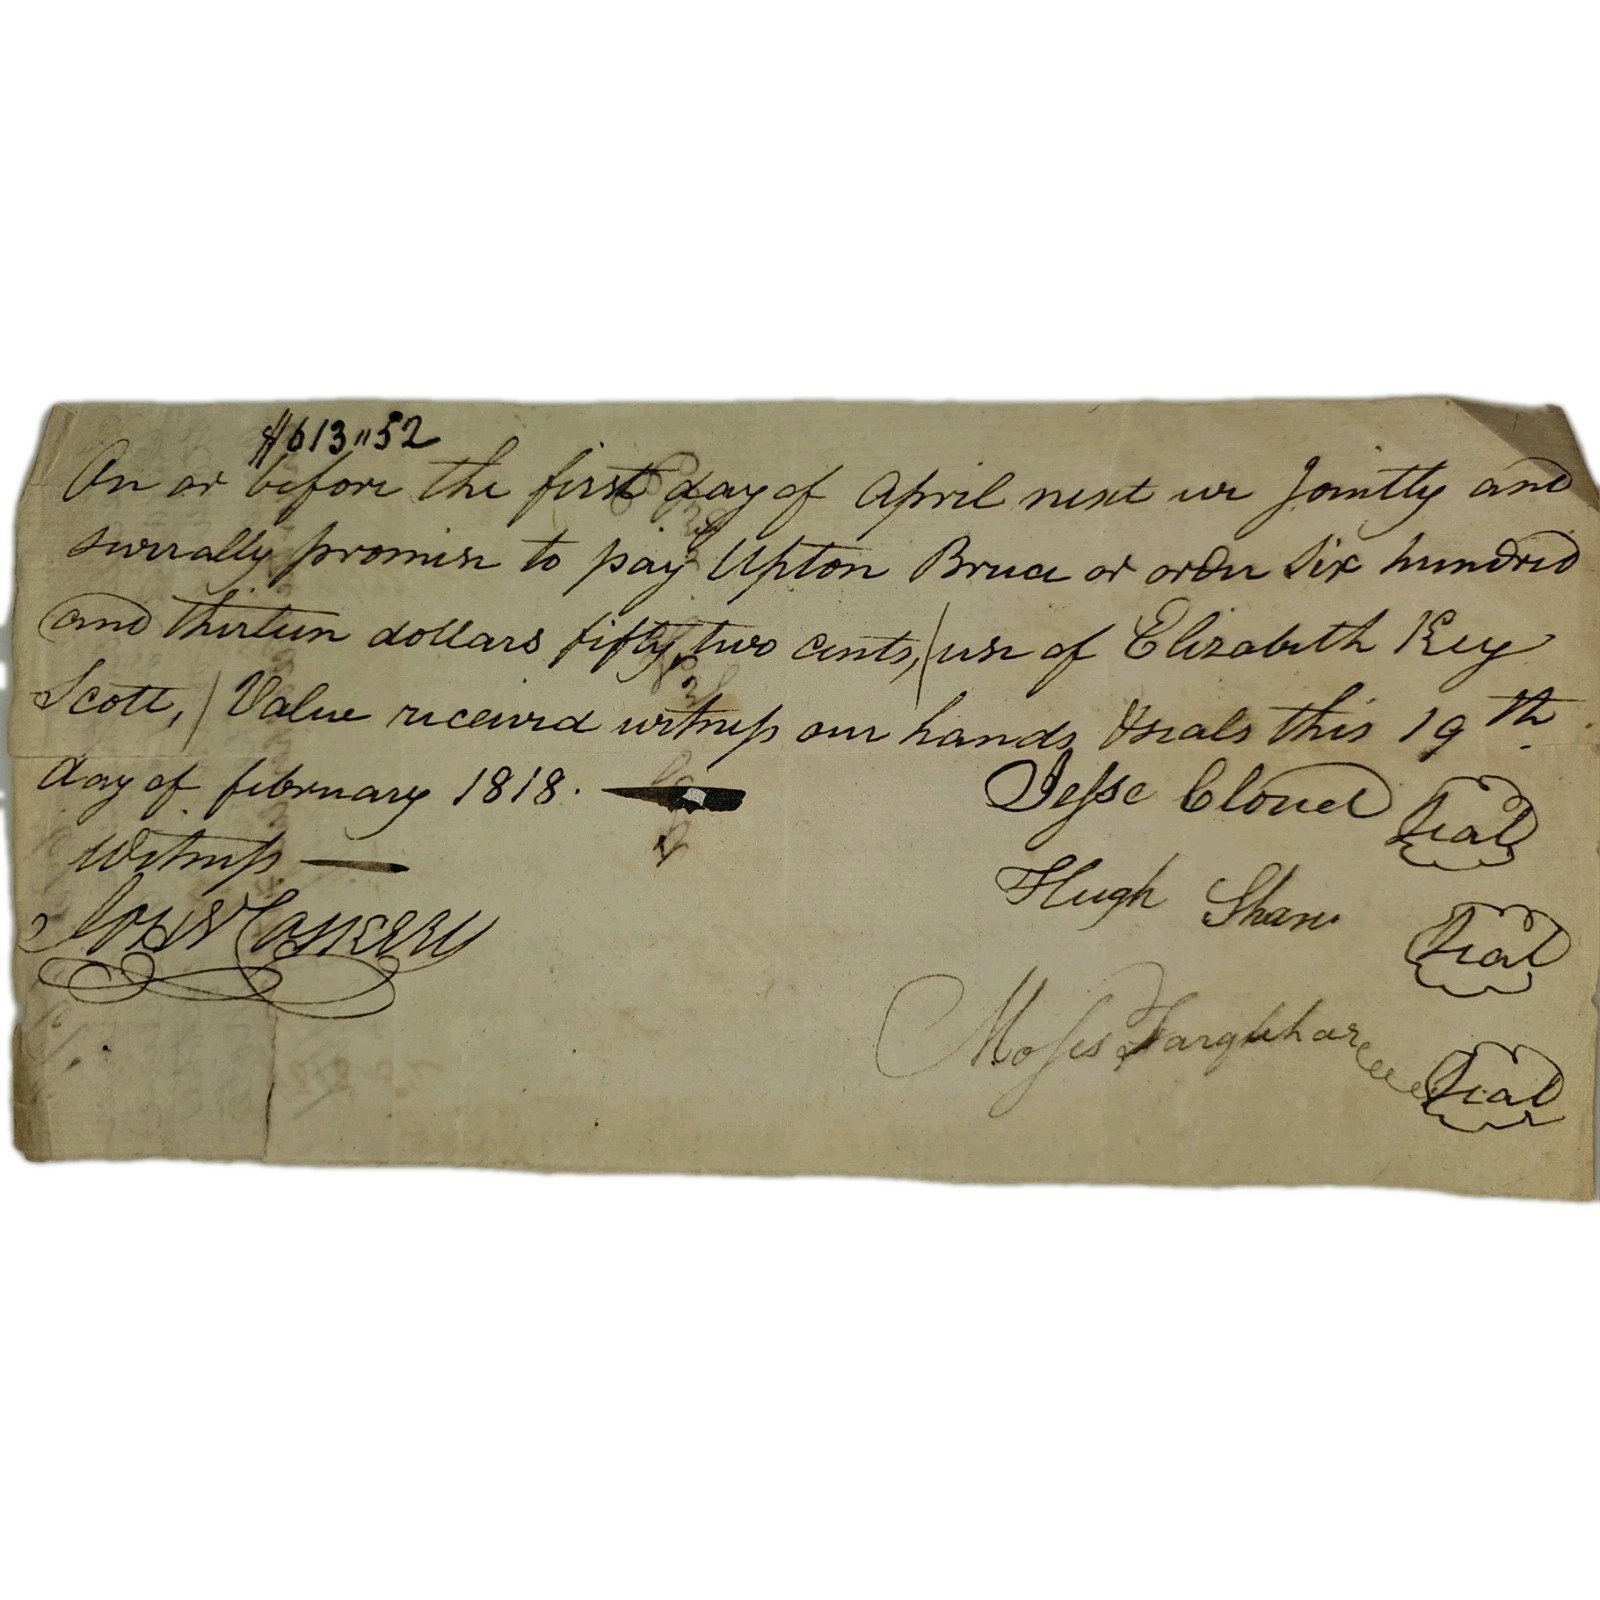 $613"52
On or before the first day of April next we Jointly and
severally promise to pay Upton Bruce or order Six hundred
and thirteen dollars fifty two cents, / use of Elizabeth Key
Scott, / Value received witness our hands & seals this 19th
day of february 1818.
Jesse Cloud Seal
Witness
Hugh Shaw Seal
Moses Farquhar Seal